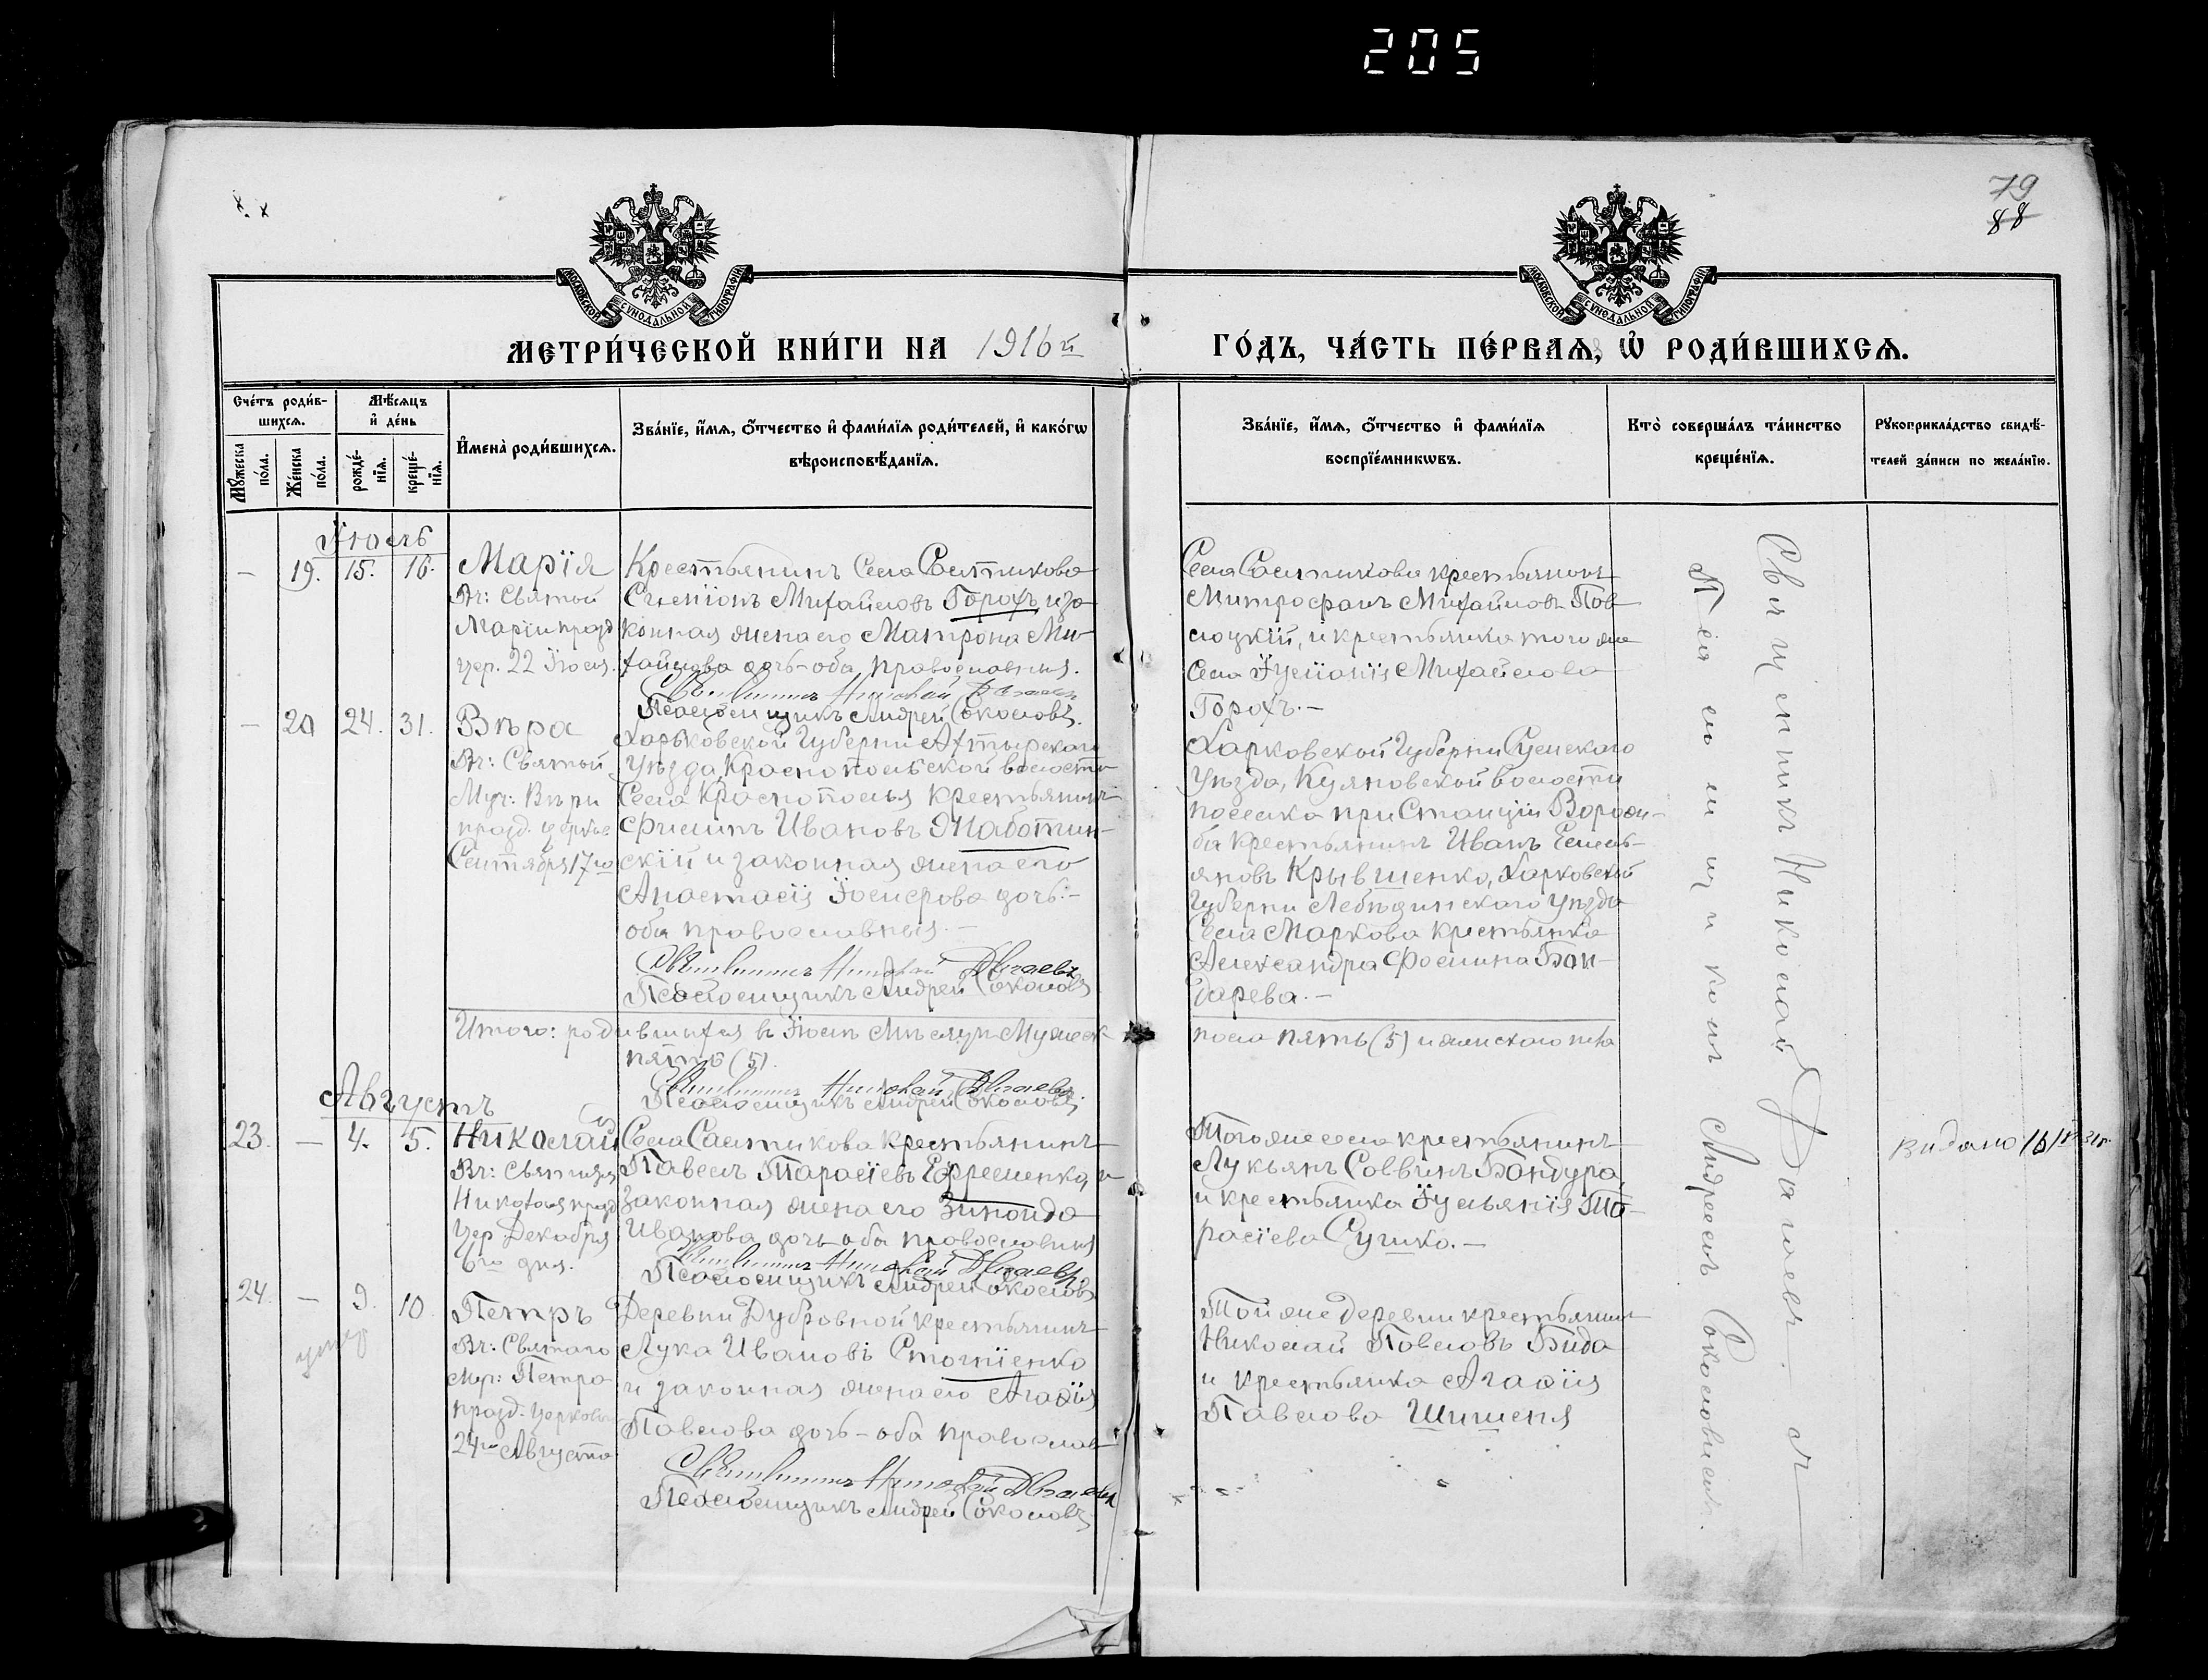 205
79
88
МОСКОВСКОЙ СѴНОДАЛЬНОЙ ТИПОГРАФІИ
МОСКОВСКОЙ СѴНОДАЛЬНОЙ ТИПОГРАФІИ
МЕТРИ́ЧЕСКОЙ КНИ́ГИ НА 1916й
ГО́ДЪ, ЧА́СТЬ ПЕ́РВАѦ, Ѡ҆ РОДИ́ВШИХСѦ.
Сче́тъ роди́в-
шихсѧ.
Мѣ́сѧцъ
и҆ де́нь
Мꙋ́жеска
по́ла.
Же́нска
по́ла.
рожде́-
нїѧ.
креще́-
нїѧ.
И҆мена̀ роди́вшихсѧ.
Зва́нїе, и҆́мѧ, ѻ҆́тчество и҆ фами́лїѧ роди́телей, и҆ како́гѡ
вѣроисповѣ́данїѧ.
Зва́нїе, и҆́мѧ, ѻ҆́тчество и҆ фами́лїѧ
воспрїе́мникѡвъ.
Кто̀ соверша́лъ та́инство
креще́нїѧ.
Рꙋкоприкла́дство свидѣ́-
телей за́писи по жела́нїю.
Їюль
— 19. 15. 16. Марія
Вч: Святой
Маріи празд
цер. 22 Їюля.
Крестьянинъ Села Салтыкова
Сѵмеіонъ Михайловъ Горохъ и за
конная жена его Матрона Ми-
хайлова дочь-оба православныя.
Священникъ Николай Данаевъ
Псаломщикъ Андрей Соколовъ.
Села Салтыкова крестьянинъ
Митрофанъ Михайловъ Пав
лоцкій, и крестьянка того же
Села Їуліанія Михайлова
Горохъ.—
— 20 24. 31. Вѣра
Вч: Святый
Муч: Вѣры
празд. церкв
Сентября 17го
Харьковской Губерни Ахтырскаго
уѣзда, Краснопольской волости
Села Краснополья крестьянинъ
Филипъ Ивановъ Жаботин-
скій и законная жена его
Анастасія Їосифова дочь.—
оба православныя.—
Священникъ Николай Данаевъ
Псаломщикъ Андрей Соколовъ
Харковской Губерни Сумскаго
Уѣзда, Куяновской волости
поселка при Станціи Ворож-
ба крестьянинъ Иванъ Емель-
яновъ Крывшенко, Харковской
Губерни Лебѣдинскаго Уѣзда
Села Маркова крестьянка
Александра Фомина Бон-
дарева.—
Итого: родившихся въ Їюлѣ Мѣсяцѣ Мужеск
пять (5).
пола пять (5) и женскаго пять
Священникъ Николай Данаевъ
Псаломщикъ Андрей Соколовъ.
Августъ
23. — 4. 5. Николай
Вч: Святителя
Николая празд
Цер Декабря
6го дня.
Села Салтыкова крестьянинъ
Павелъ Тарасіевъ Ефременко, и
законная жена его Зинаида
Иванова дочь-оба православныя
Священникъ Николай Данаевъ
Псаломщикъ Андрей Соколовъ
Того же села крестьянинъ
Лукьянъ Саввинъ Бондура,
и крестьянка Їульянія Та-
расіева Сушко.—
видано
24. — 9. 10. Петръ
умер
Вч: Святаго
Мч: Петра
празд. церковью
24го Августа
Деревни Дубровной крестьянинъ
Лука Ивановъ Стогніенко
и законная жена его Агаѳія
Павлова дочь-оба православ
Священникъ Николай Данаевъ
Псаломщикъ Андрей Соколовъ
Той же деревни крестьянин
Николай Павловъ Бида
и крестьянка Агаѳія
Павлова Шишеня
Священникъ Николай Данаевъ съ
Псаломщикомъ Андреемъ Соколовымъ.